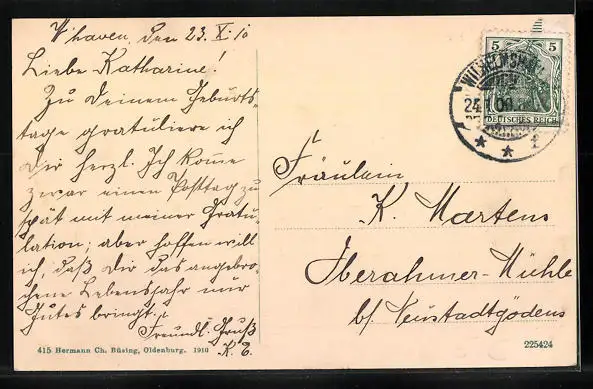 W'haven, den 23. X. 10
Liebe Katharine!
Zu Deinem Geburts-
tage gratuliere ich
Dir herzl. Ich komme
zwar einen Posttag zu
spät mit meiner Gratu-
lation; aber hoffen will
ich, daß Dir das angebro-
chene Lebensjahr nur
Gutes bringt.
Freundl. Gruß
K. T.
5 5
DEUTSCHES REICH
WILHELMSHAV
24
* * 1
Fräulein
K. Martens
Oberahmer-Mühle
b/ Neustadtgödens
415 Hermann Ch. Büsing, Oldenburg. 1910
225424